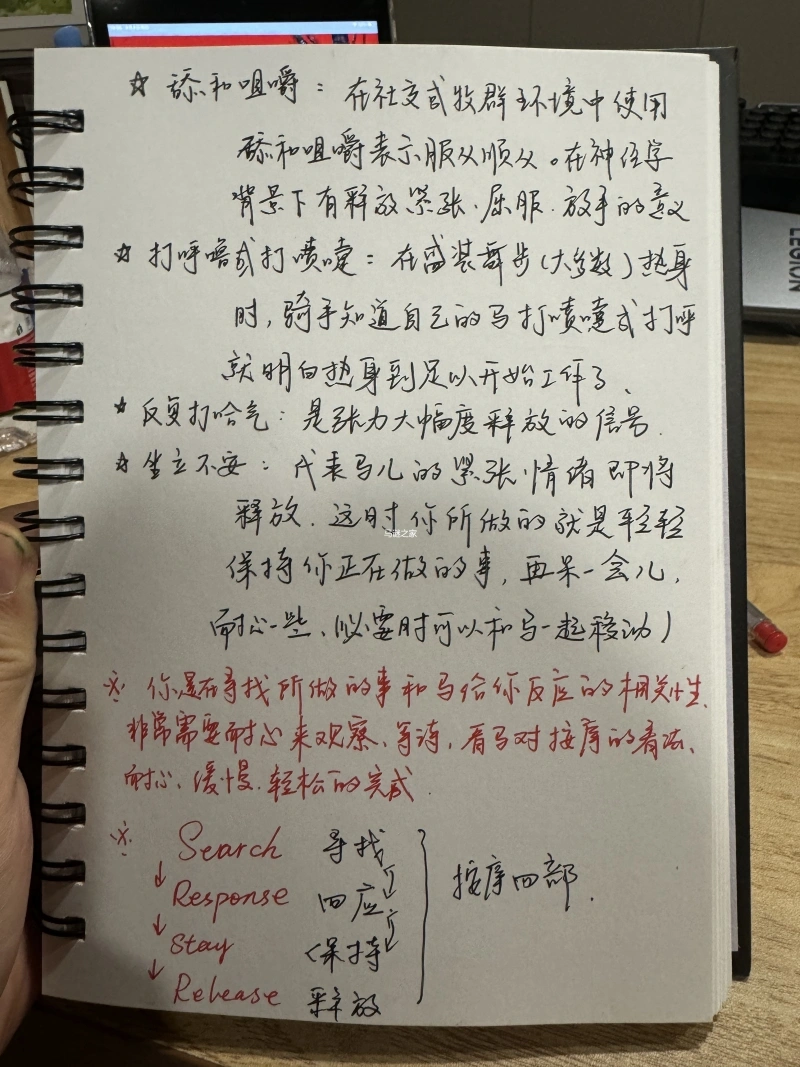 ☆ 舔和咀嚼：在社交式牧群环境中使用
舔和咀嚼表示服从顺从。在神经学
背景下有释放紧张、屈服、放手的意义
☆ 打呼噜或打喷嚏：在盛装舞步(大多数)热身
时,骑手知道自己的马打喷嚏或打呼
就明白热身到足以开始工作了、
☆ 反复打哈气：是张力大幅度释放的信号.
☆ 坐立不安：代表马儿的紧张情绪即将
释放.这时你所做的就是轻轻
保持你正在做的事,再呆一会儿,
耐心一些、必要时可以和马一起移动)
※ 你是在寻找所做的事和马给你反应的相关性、
非常需要耐心来观察、等待,看马对按摩的看法、
耐心、缓慢、轻松的完成.
※ Search 寻找
↓ Response 回应
↓ Stay 保持
↓ Release 释放
按摩四部.
LEGION
马谜之家